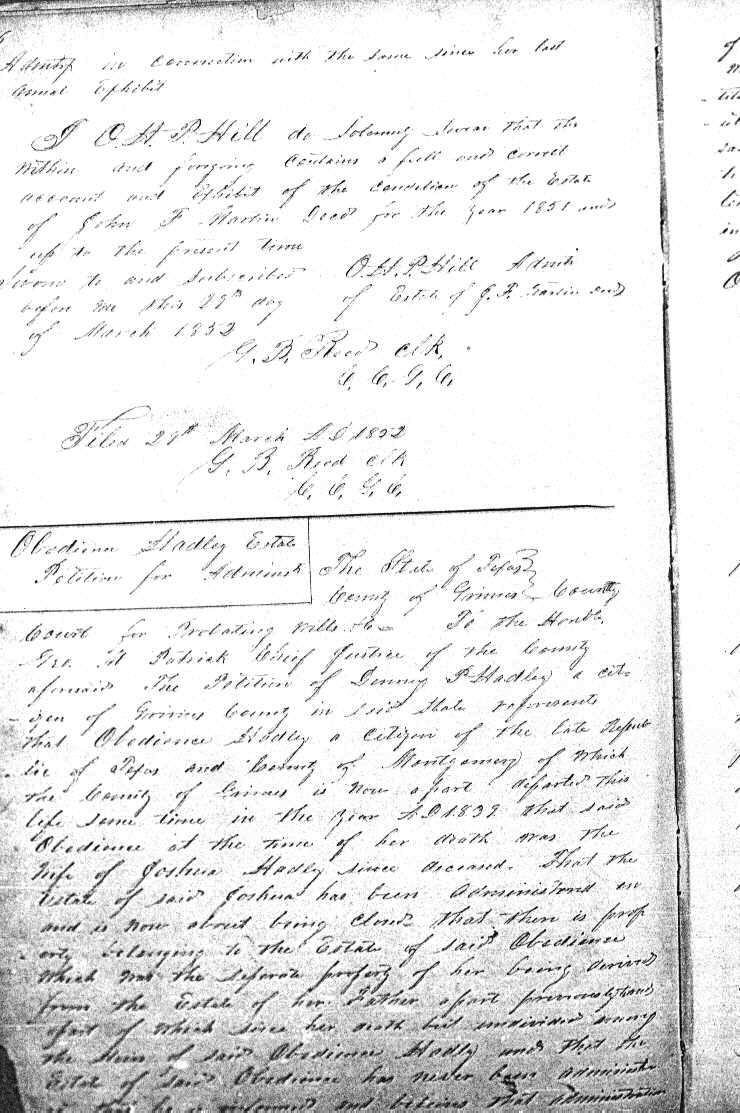 in connection with the same since her last
Exhibit
I O. H. P. Hill do Solemny Swear that the
within and forgoing contains a full and correct
account and Exhibit of the condition of the Estate
of John F Martin Decd for the year 1851 and
up to the present time
Sworn to and Subscribed O. H. P. Hill Admr
before me this 29th day of Estate of J. F. Martin decd
of March 1852
G. B. Reed clk,
C. C. G. C.
Filed 29th March AD 1852
G. B. Reed clk
C. C. G. C.
Obedience Hadley Estate
Petition for
The State of Texas
County of Grimes County
Court for Probating wills &c To the Honble
Geo. M Patrick Chief Justice of the County
aforesaid The Petition of Denny P Hadley a cit-
izen of Grimes County in said State represents
that Obedience Hadley a citizen of the late Repub
lic of Texas and County of Montgomery of which
the County of Grimes is now a part departed this
life some time in the year AD 1839 that said
Obedience at the time of her death was the
wife of Joshua Hadly since deceased. That the
Estate of said Joshua has been Administered on
and is now about being closed that then is prop
erty belonging to the Estate of said Obedience
which was the seperate property of her being derived
from the Estate of her Father a part previously and
apart of which since her death but undivided among
the Heirs of said Obedience Hadly and that the
Estate of said Obedience has never been
is informed and believes that administration